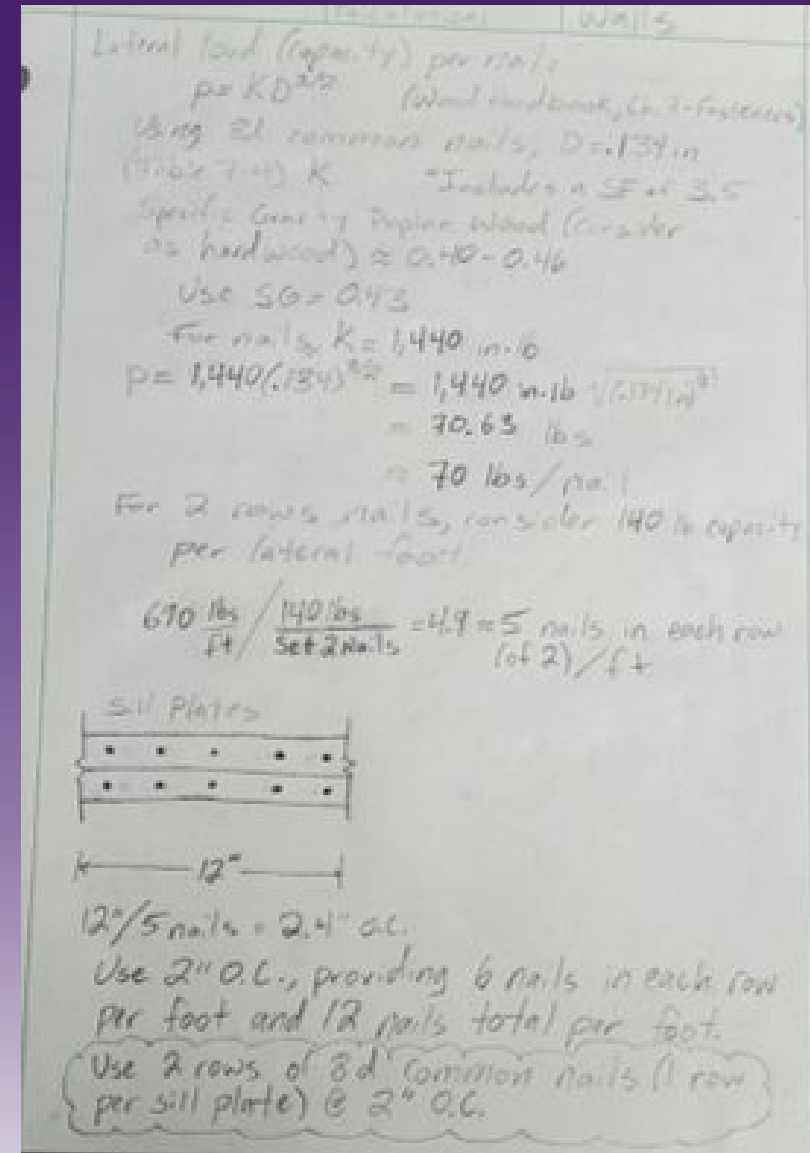 Calculations Walls
Lateral load (capacity) per nails
p = KD^3/2 (Wood Handbook, Ch. 7-Fasteners)
Using 8d common nails, D = .134 in
(Table 7-4) K *Includes a SF of 3.5
Specific Gravity Poplar Wood (Consider
as hardwood) ≈ 0.40-0.46
Use SG = 0.43
For nails, K = 1,440 in-lb
p = 1,440(.134)^3/2 = 1,440 in-lb √(.134in)^3
= 70.63 lbs
≈ 70 lbs/nail
For 2 rows nails, consider 140 lb capacity
per lateral foot.
690 lbs/ft / 140 lbs/Set 2 Nails = 4.9 ≈ 5 nails in each row
(of 2)/ft
Sill Plates
12"
12"/5 nails = 2.4" o.c.
Use 2" O.C., providing 6 nails in each row
per foot and 12 nails total per foot.
Use 2 rows of 8d common nails (1 row
per sill plate) @ 2" O.C.